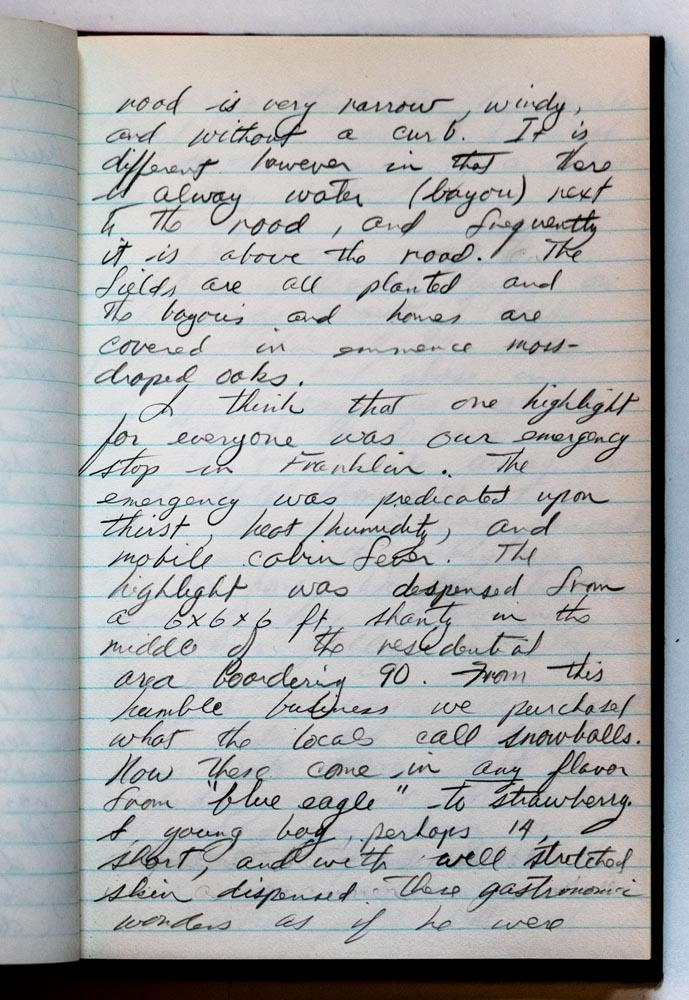 road is very narrow, windy,
and without a curb. It is
different however in that there
is alway water (bayou) next
to the road, and frequently
it is above the road. The
fields are all planted and
the bayous and homes are
covered in emmence moss-
draped oaks.
I think that one highlight
for everyone was our emergency
stop in Franklin. The
emergency was predicated upon
thirst, heat/humidity, and
mobile cabin fever. The
highlight was despensed from
a 6x6x6 ft. shanty in the
middle of the residential
area boardering 90. From this
humble business we purchased
what the locals call snowballs.
Now these come in any flavor
from "blue eagle" to strawberry.
A young boy, perhaps 14,
short, and with well stretched
skin dispensed these gastronomic
wonders as if he were